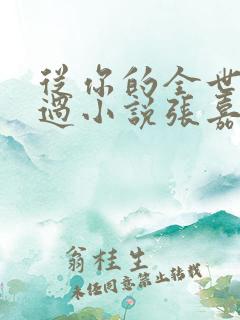 從你的全世
過小說張嘉
翁桂生
未经同意禁止转载